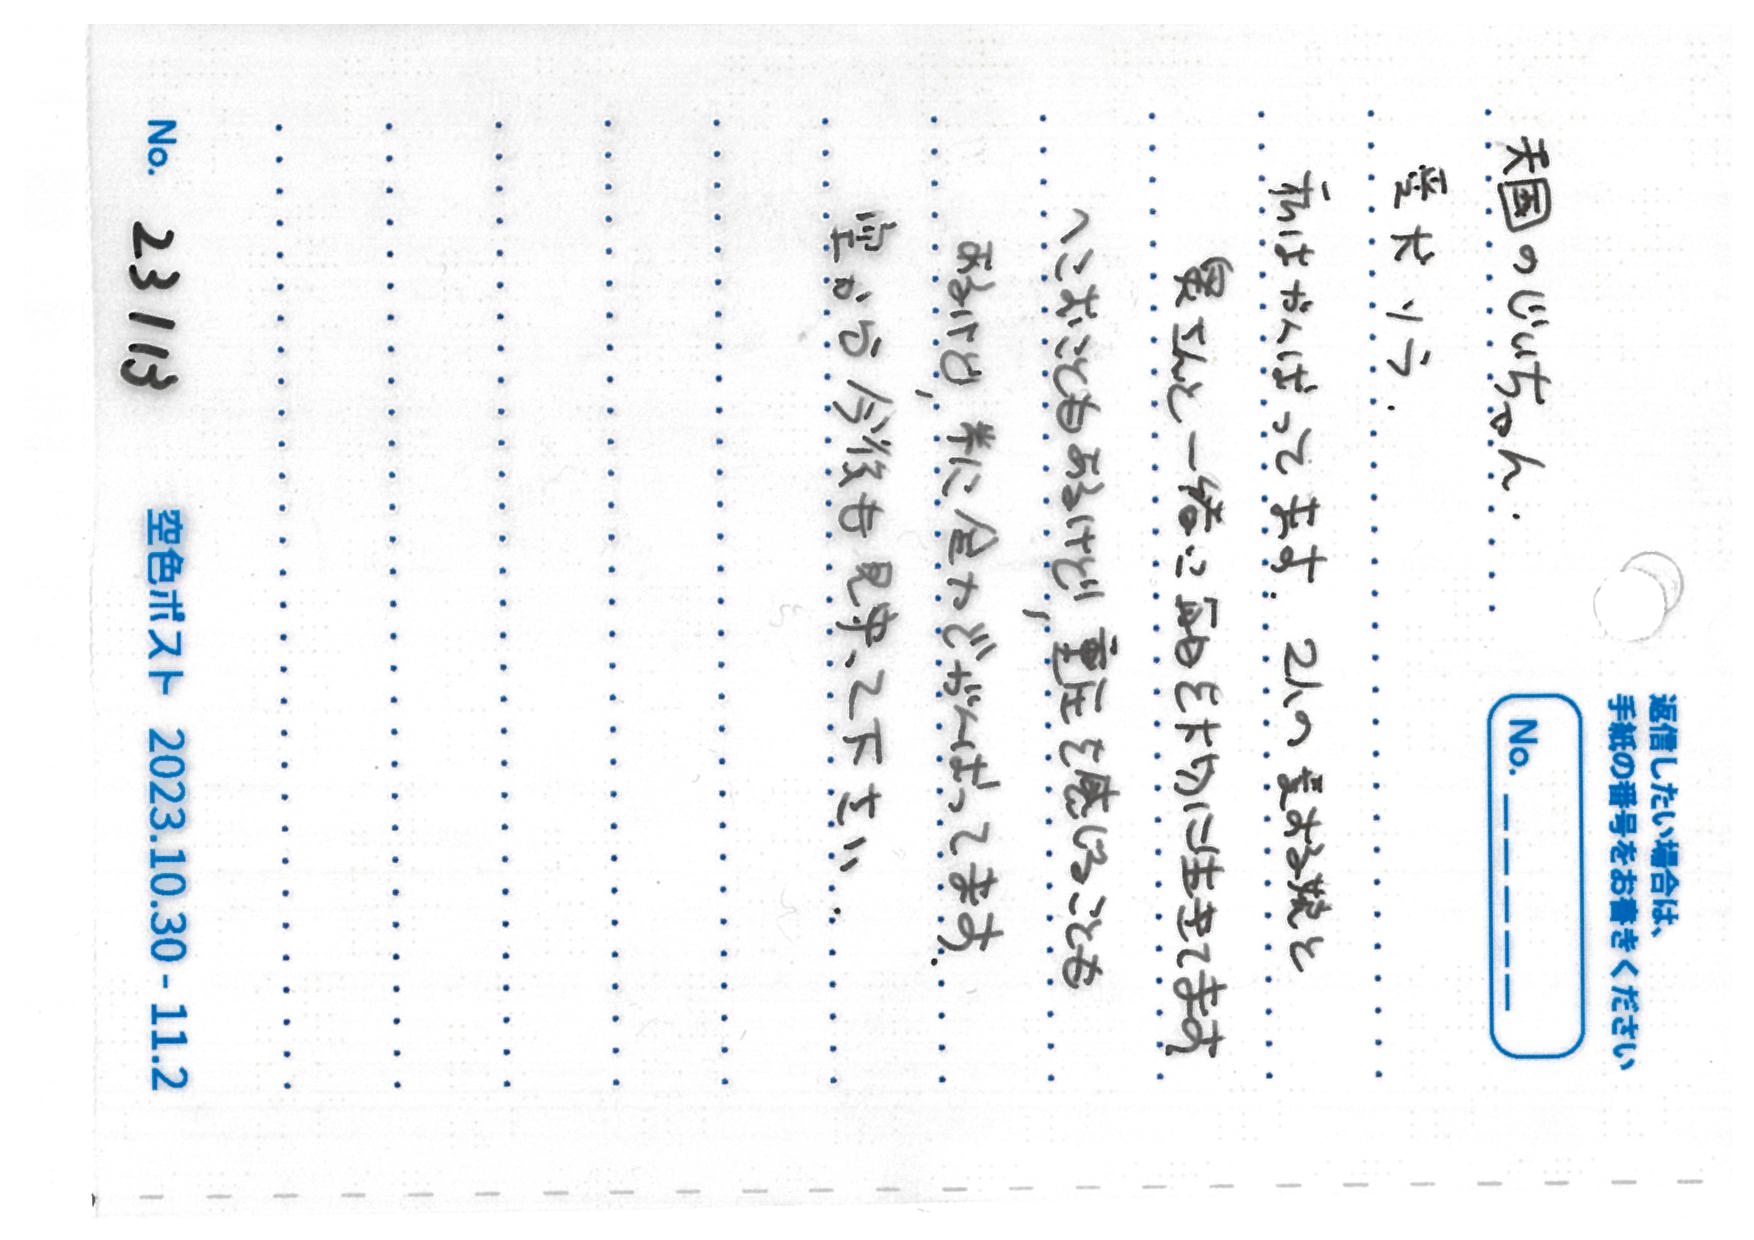 返信したい場合は、
手紙の番号をお書きください
No. _ _ _ _ _
天国のじいちゃん.
愛犬ソラ.
私はがんばってます. 2人の愛する娘と
奥さんと一緒に毎日を大切に生きてます
へこむこともあるけど, 重圧を感じることも
あるけど, 常に全力でがんばってます.
空から今後も見守って下さい.
No. 23113
空色ポスト 2023.10.30 - 11.2